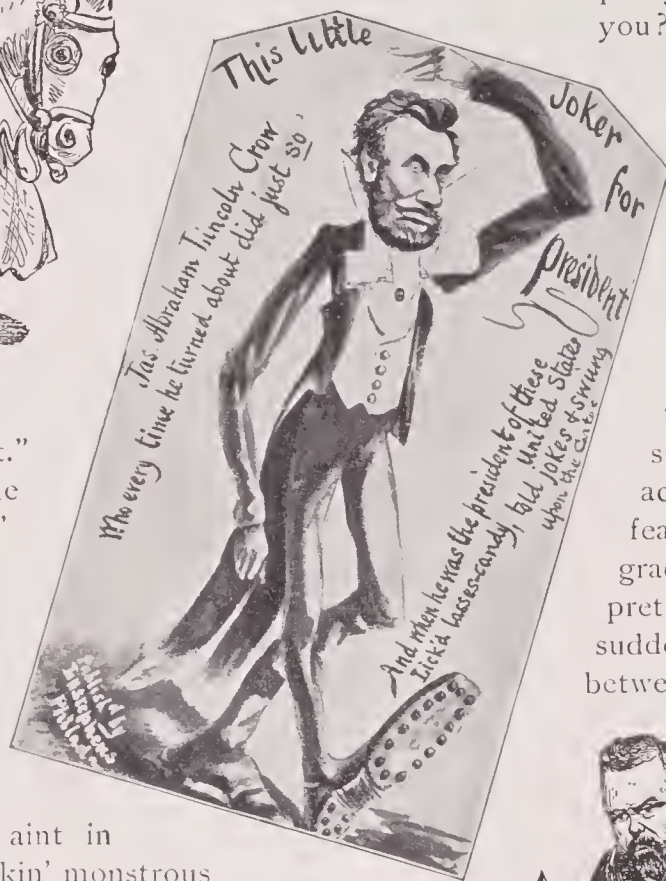 you?
This little
Joker
for
President
Jas. Abraham Lincoln Crow
Who every time he turned about did just so
And when he was the president of these
United States
Lick'd lasses-candy, told jokes & swung
upon the Gates
t."
e
s
ac
fea
grac
pret
sudde
betwe
aint in
kin' monstrous